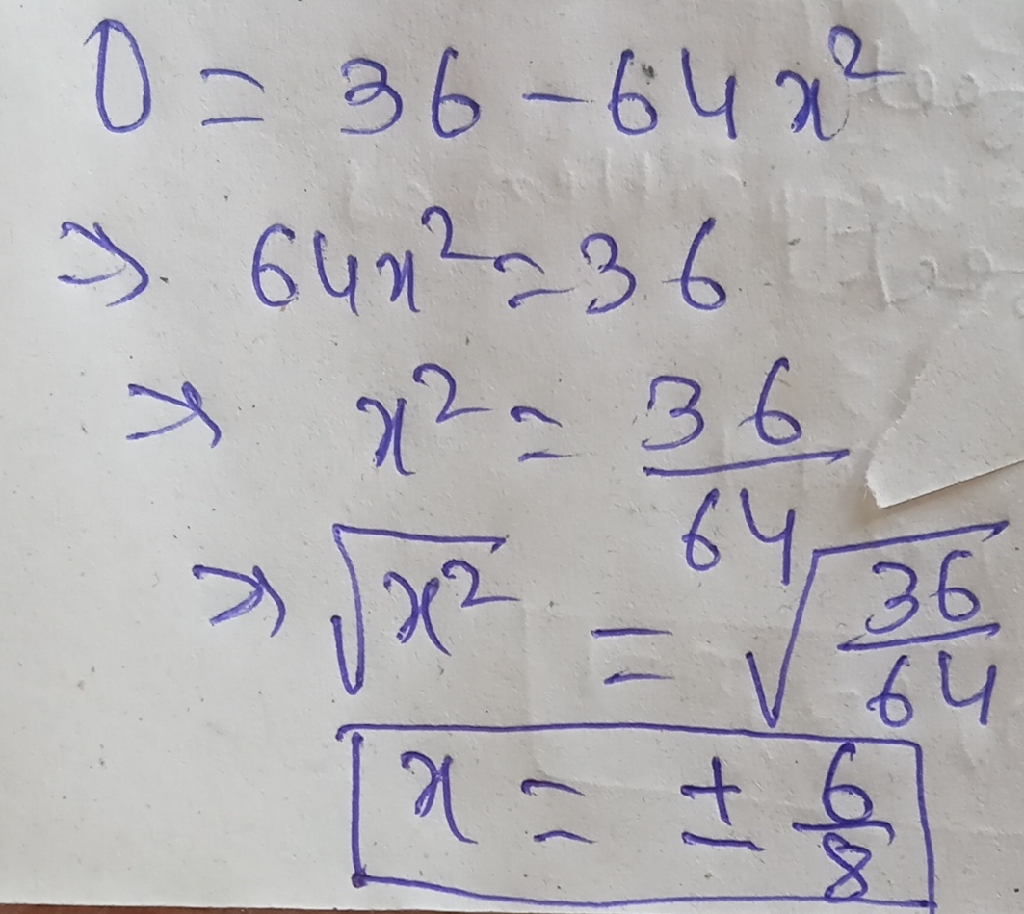 0 = 36 - 64x²
⇒ 64x² = 36
⇒ x² = 36/64
⇒ √x² = √36/64
x = ± 6/8